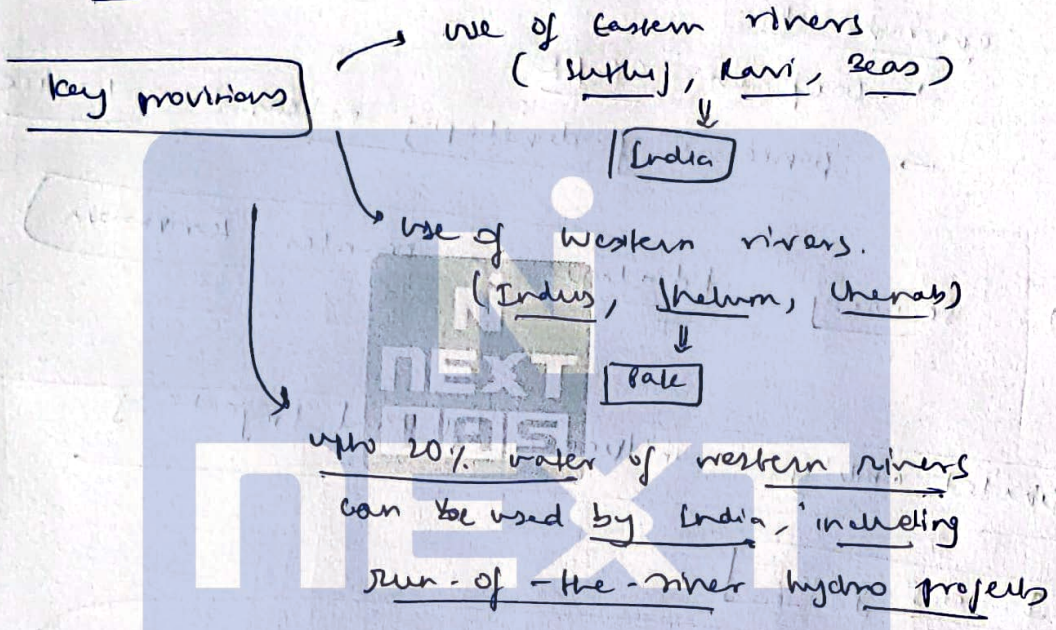 Key provisions
use of Eastern rivers
(Sutlej, Ravi, Beas)
India
use of western rivers.
(Indus, Jhelum, Chenab)
Pak
upto 20% water of western rivers
can be used by India, including
run-of-the-river hydro projects
NEXT
IAS
NEXT